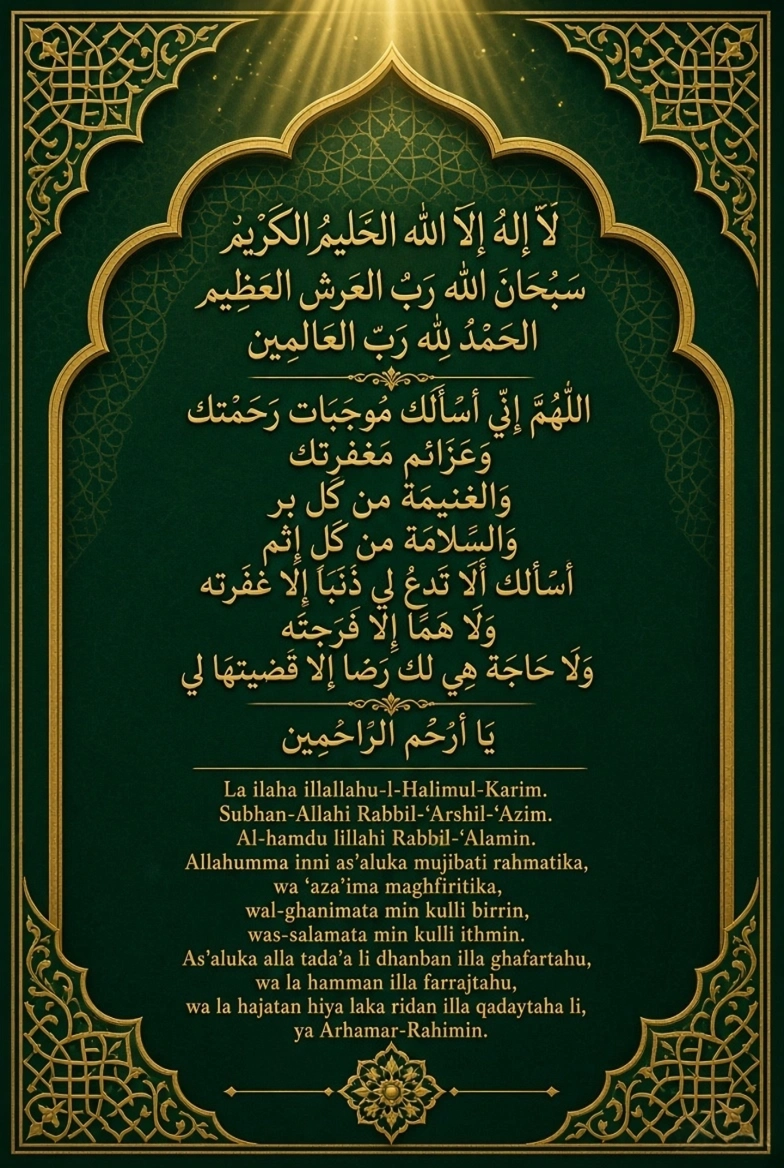 لَاّ إِلهُ إِلَا الله الحَّليمُ الكَرْيمُ
سَبُحَانَ الله رَبُ العَرش العَظِيم
الحَمْدُ لِلّه رَبّ العَالمِين
اللّٰهُمَّ إِنِّي أسْألَك مُوجَبَات رَحَمْتك
وَعَزَائم مَغفرتك
وَالغنيمَة من كَل بر
وَالسًلامَة من كَل إثم
أسْألك ألَا تَدعُ لي ذَنَبَاً إلا غفَرته
وَلَا هَمًا إلا فَرَجتَه
وَلَا حَاجَة هِي لك رَضا إلا قَضيتهَا لي
يَا أرُحْم الرًاحْمِين
La ilaha illallahu-l-Halimul-Karim.
Subhan-Allahi Rabbil-‘Arshil-‘Azim.
Al-hamdu lillahi Rabbil-‘Alamin.
Allahumma inni as’aluka mujibati rahmatika,
wa ‘aza’ima maghfiritika,
wal-ghanimata min kulli birrin,
was-salamata min kulli ithmin.
As’aluka alla tada’a li dhanban illa ghafartahu,
wa la hamman illa farrajtahu,
wa la hajatan hiya laka ridan illa qadaytaha li,
ya Arhamar-Rahimin.